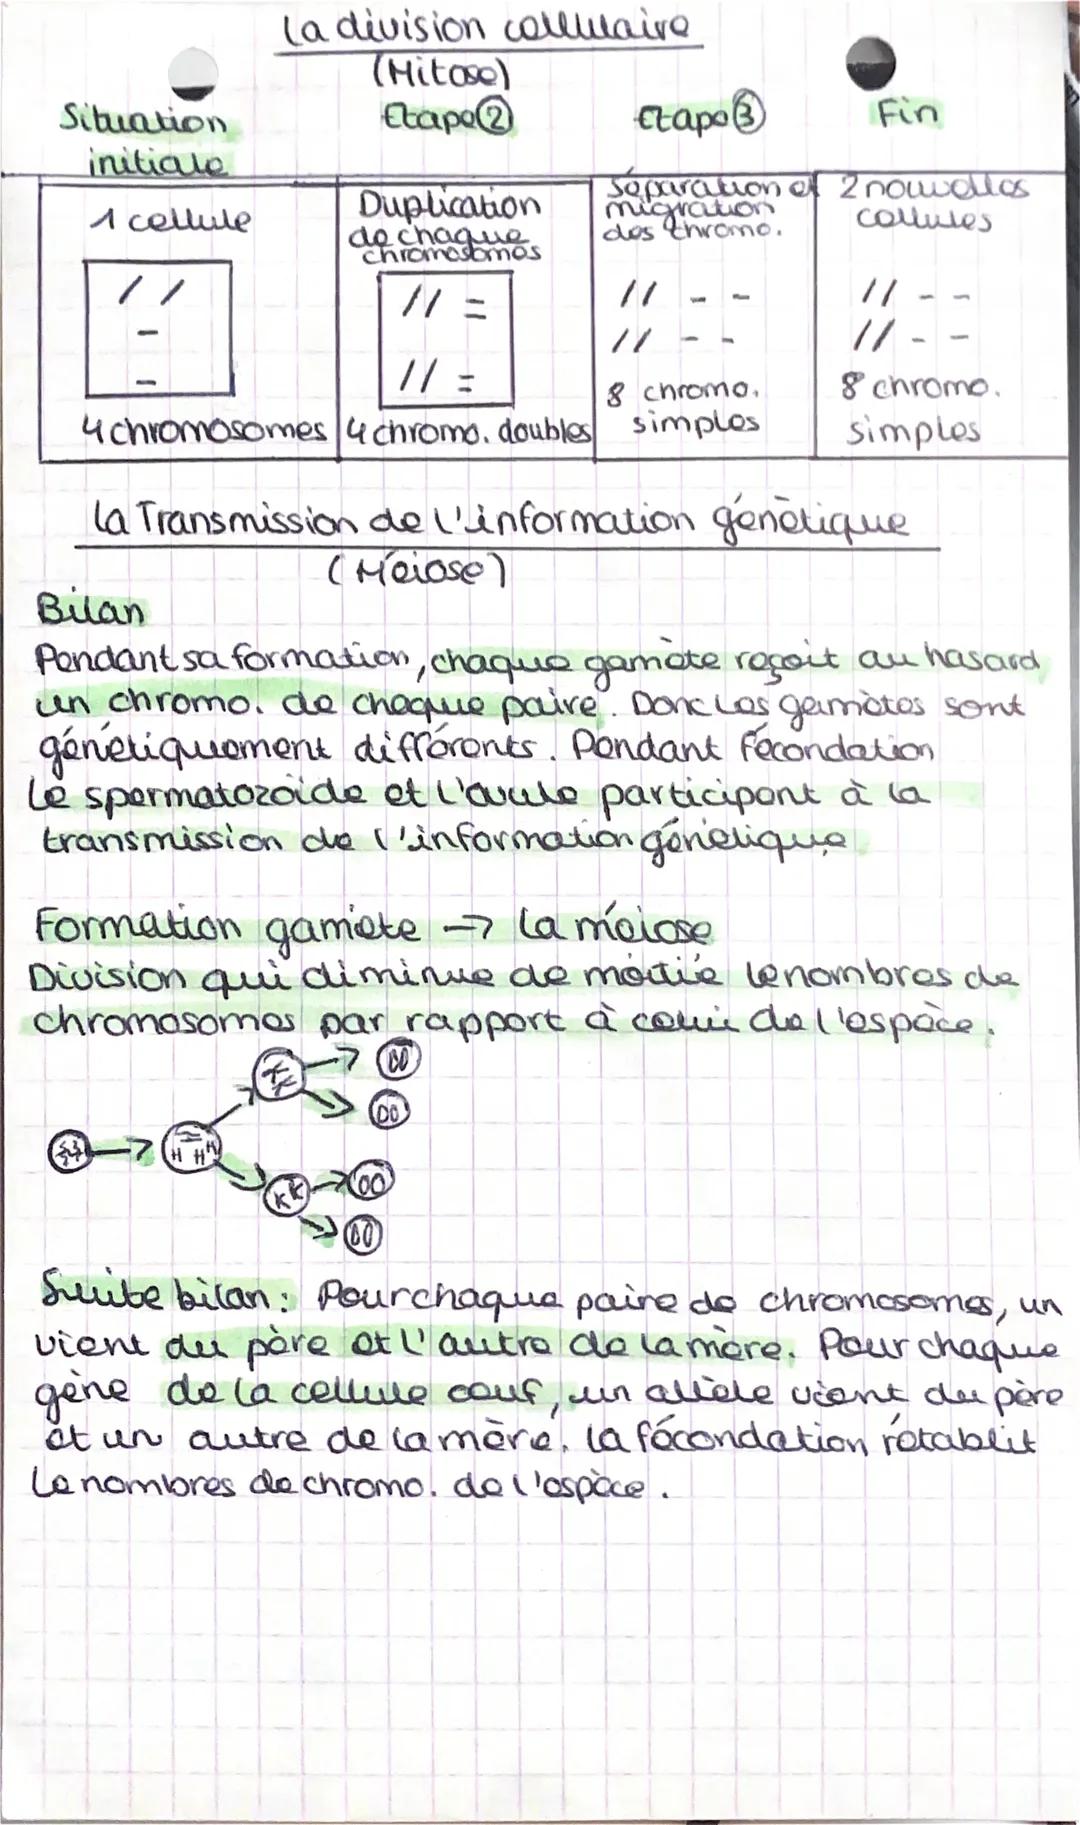 La division cellulaire
(Mitose)
Situation initiale
Etape ②
Etape ③
Fin
1 cellule
4 chromosomes
Duplication
de chaque
chromosomes
4 chromo. doubles
Séparation et
migration
des chromo.
8 chromo.
simples
2 nouvelles
cellules
8 chromo.
simples
La Transmission de l'information génétique
(Méiose)
Bilan
Pendant sa formation, chaque gamète reçoit au hasard
un chromo. de chaque paire. Donc Les gamètes sont
génétiquement différents. Pendant fécondation
Le spermatozoïde et l'ovule participent à la
transmission de l'information génétique
Formation gamète → La méiose
Division qui diminue de moitié le nombres de
chromosomes par rapport à celui de l'espèce.
Suite bilan : Pour chaque paire de chromosomes, un
vient du père et l'autre de la mère. Pour chaque
gène de la cellule œuf, un allèle vient du père
et un autre de la mère. La fécondation rétablit
Le nombres de chromo. de l'espèce.